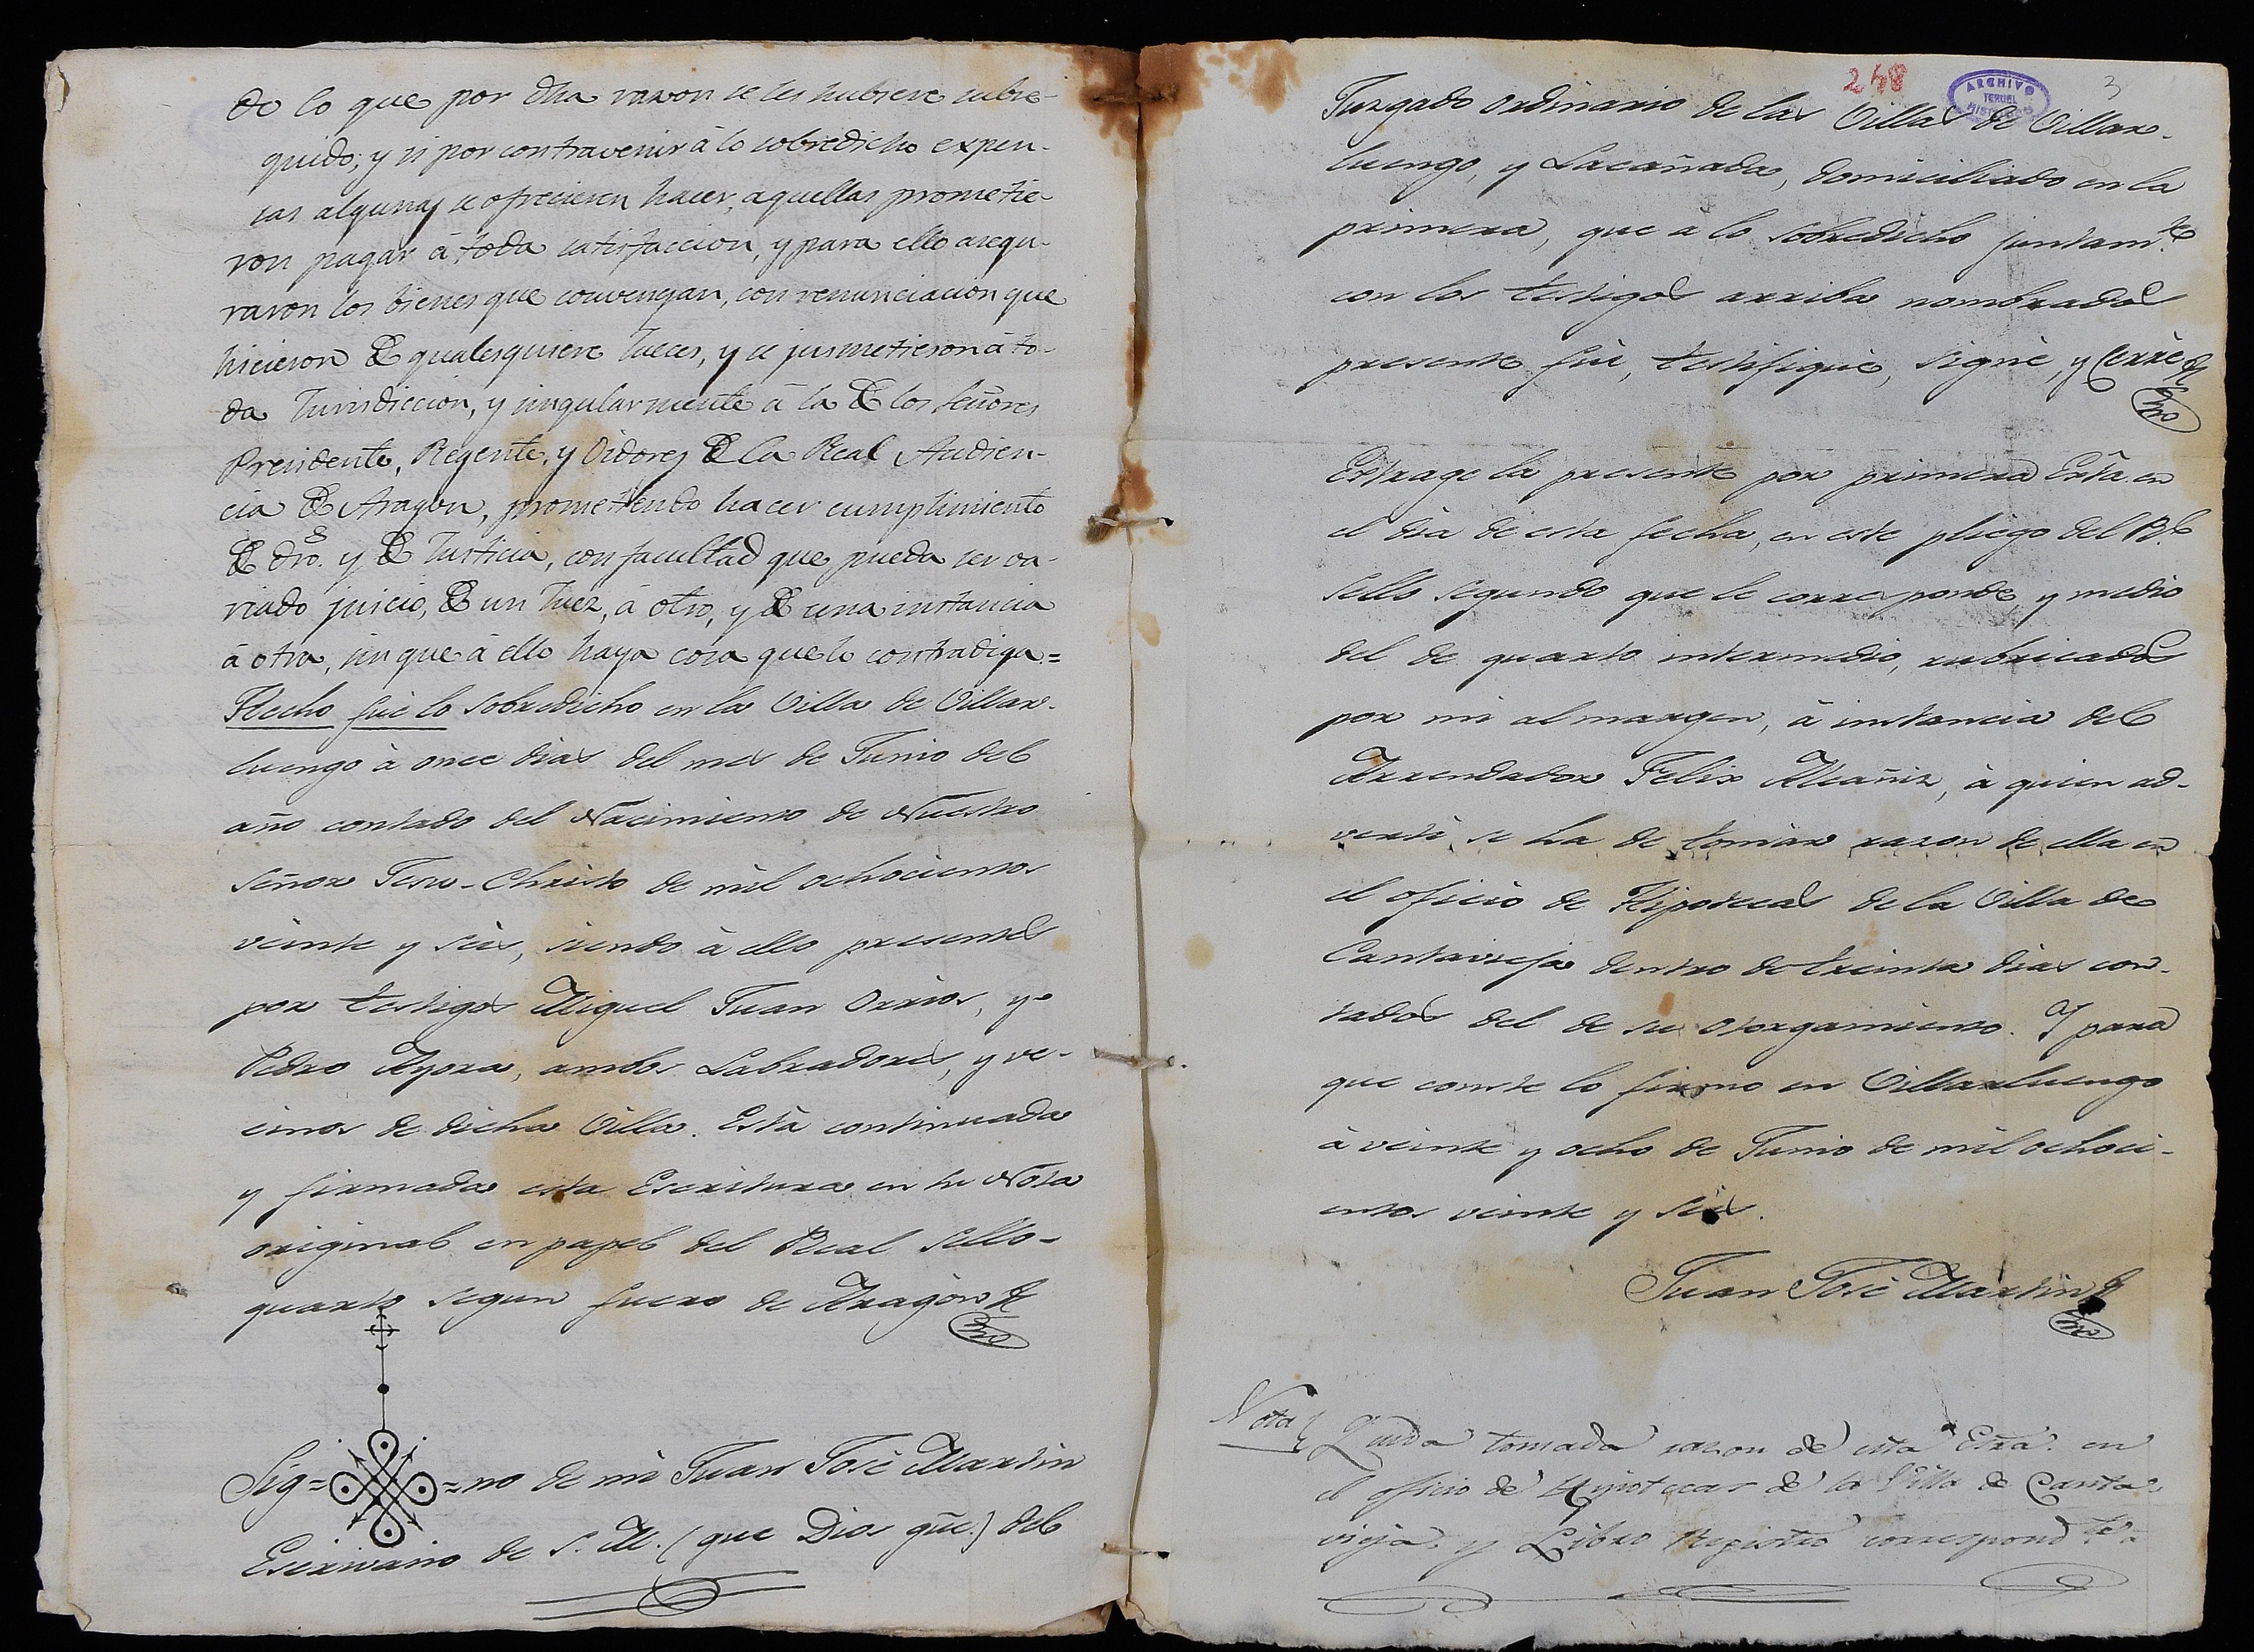 de lo que por dha razon se les hubiere subse-
guido; y si por contravenir á lo sobredicho expen-
sas algunas se ofrecieren hacer, aquellas prometie-
ron pagar á toda satisfaccion, y para ello asegu-
raron los bienes que convengan, con renunciacion que
hicieron de qualesquiere Jueces, y se jusmetieron á to-
da Jurisdiccion, y singularmente á la de los señores
Presidente, Regente, y Oidores de la Real Audien-
cia de Aragon, prometiendo hacer cumplimiento
de dro. y de Justicia, con facultad que pueda ser va-
riado juicio, de un Juez, á otro, y de una instancia
á otra, sin que á ello haya cosa que lo contradiga.=
Hecho fue lo sobredicho en la Villa de Villar-
luengo à once dias del mes de Junio del
año contado del Nacimiento de Nuestro
Señor Jesu-Christo de mil ochocientos
veinte y seis, siendo à ello presentes
por testigos Miguel Juan Orrios, y
Pedro Ayora, ambos Labradores, y ve-
cinos de dicha Villa. Està continuada
y firmada esta Escritura en su Nota
original en papel del Real Sello
quarto segun fuero de Aragon
Sig= =no de mi Juan José Martin
Escrivano de S. M. (que Dios gũe.) del
248
3
ARCHIVO
TERUEL
Juzgado ordinario de las Villas de Villar-
luengo, y Lacañada, domiciliado en la
primera, que à lo sobredicho juntam.te
con los testigos arriba nombrados
presente fui, testifiqué, signé, y cerré
Estrage la presente por primera Estra. en
el dia de esta fecha, en este pliego del R.l
Sello segundo que le corresponde, y medio
del de quarto intermedio, rubricados
por mi al margen, à instancia del
Arrendador Felix Alcañiz, à quien ad-
verti, se ha de tomar razon de ella en
el oficio de Hipotecas de la Villa de
Cantavieja dentro de treinta dias con-
tados del de su otorgamiento. Y para
que conste lo firmo en Villarluengo
à veinte y ocho de Junio de mil ochoci-
entos veinte y seis.
Juan José Martin
Nota Queda tomada razon de esta Estra. en
el oficio de Hipotecas de la Villa de Canta-
vieja, y Libro Registro correspond.te à